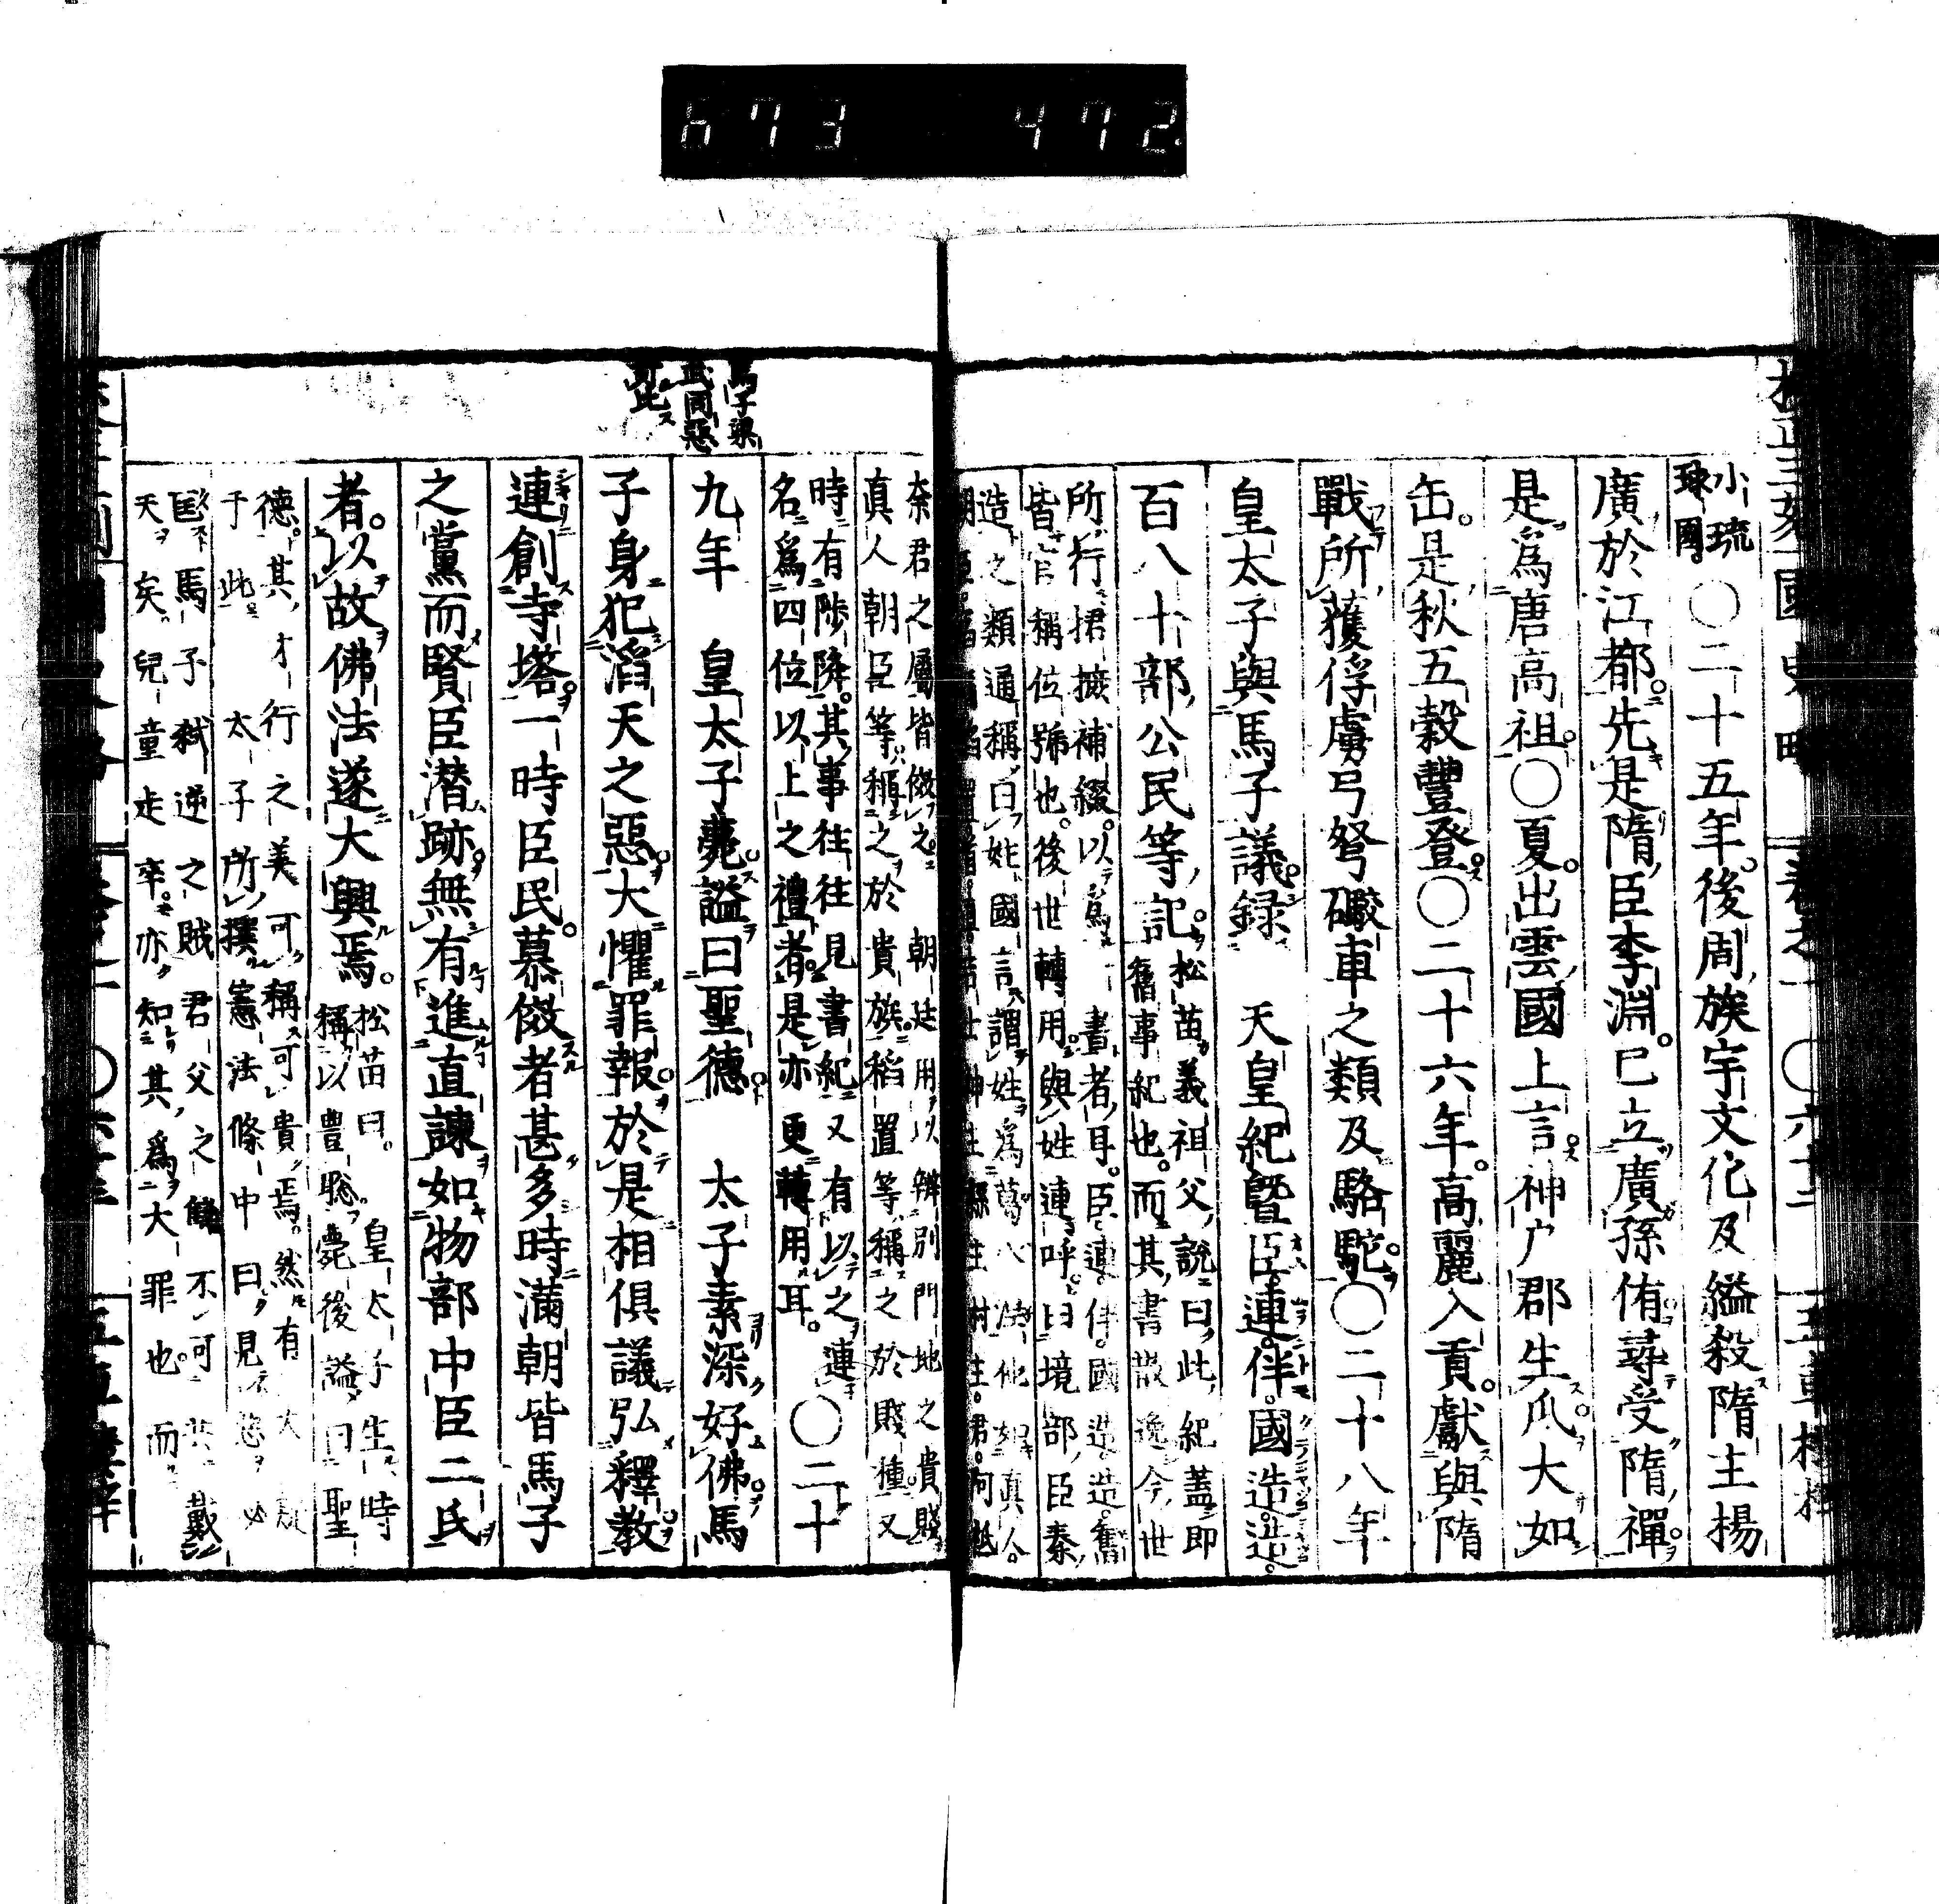 673 472
小琉
球國。
〇二十五年。後周族宇文化及縊殺隋主揚
廣於江都。先是隋臣李淵。已立廣孫侑尋受隋禪。
是爲唐高祖。〇夏。出雲國上言。神戸郡生瓜。大如
缶。是秋五穀豐登。〇二十六年。高麗入貢。獻與隋
戰所獲俘虜弓弩礮車之類及駱駝。〇二十八年
皇太子與馬子議。録 天皇紀曁臣。連。伴。國造。造。
百八十部公民等記。
松苗義祖父説曰此紀蓋即
舊事紀也。而其書散逸今世
所行捃摭補綴。以爲 書者耳。臣連。伴。國造。造。舊
皆官稱位號也。後世轉用。與姓連呼。曰境部臣秦
造之類通稱曰姓。國言謂姓爲
眞人。
奈君之屬皆倣之。 朝廷用以辨別門地之貴賤
眞人朝臣等稱之於貴族。稻置等稱之於賤種。又
時有陟降。其事往往見書紀又有以之連
名爲四位以上之禮者。是亦更轉用耳。
〇二十
九年 皇太子薨。謚曰聖德 太子素深好佛。馬
子身犯滔天之惡。大懼罪報。於是相倶議弘釋教
連創寺塔。一時臣民。慕倣者甚多。時滿朝皆馬子
之黨而賢臣潜跡。無有進直諫如物部中臣二氏
者。以故佛法遂大興焉。
松苗曰。 皇太子生時
稱以豊聡。薨後謚曰聖
德。其才行之美可稱可貴焉。然有
于此 太子所撰憲法條中曰見惡必
匡。馬子弑逆之賊君父之讎不可共戴
天矣。兒童走卒。亦知其爲大罪也而
馬子
同惡